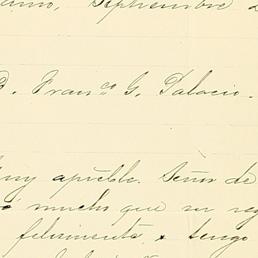 Septiembre 2
D. Franco. G. Palacio.
muy apreble. Señor de
mucho que su reg
felizmente, & tengo